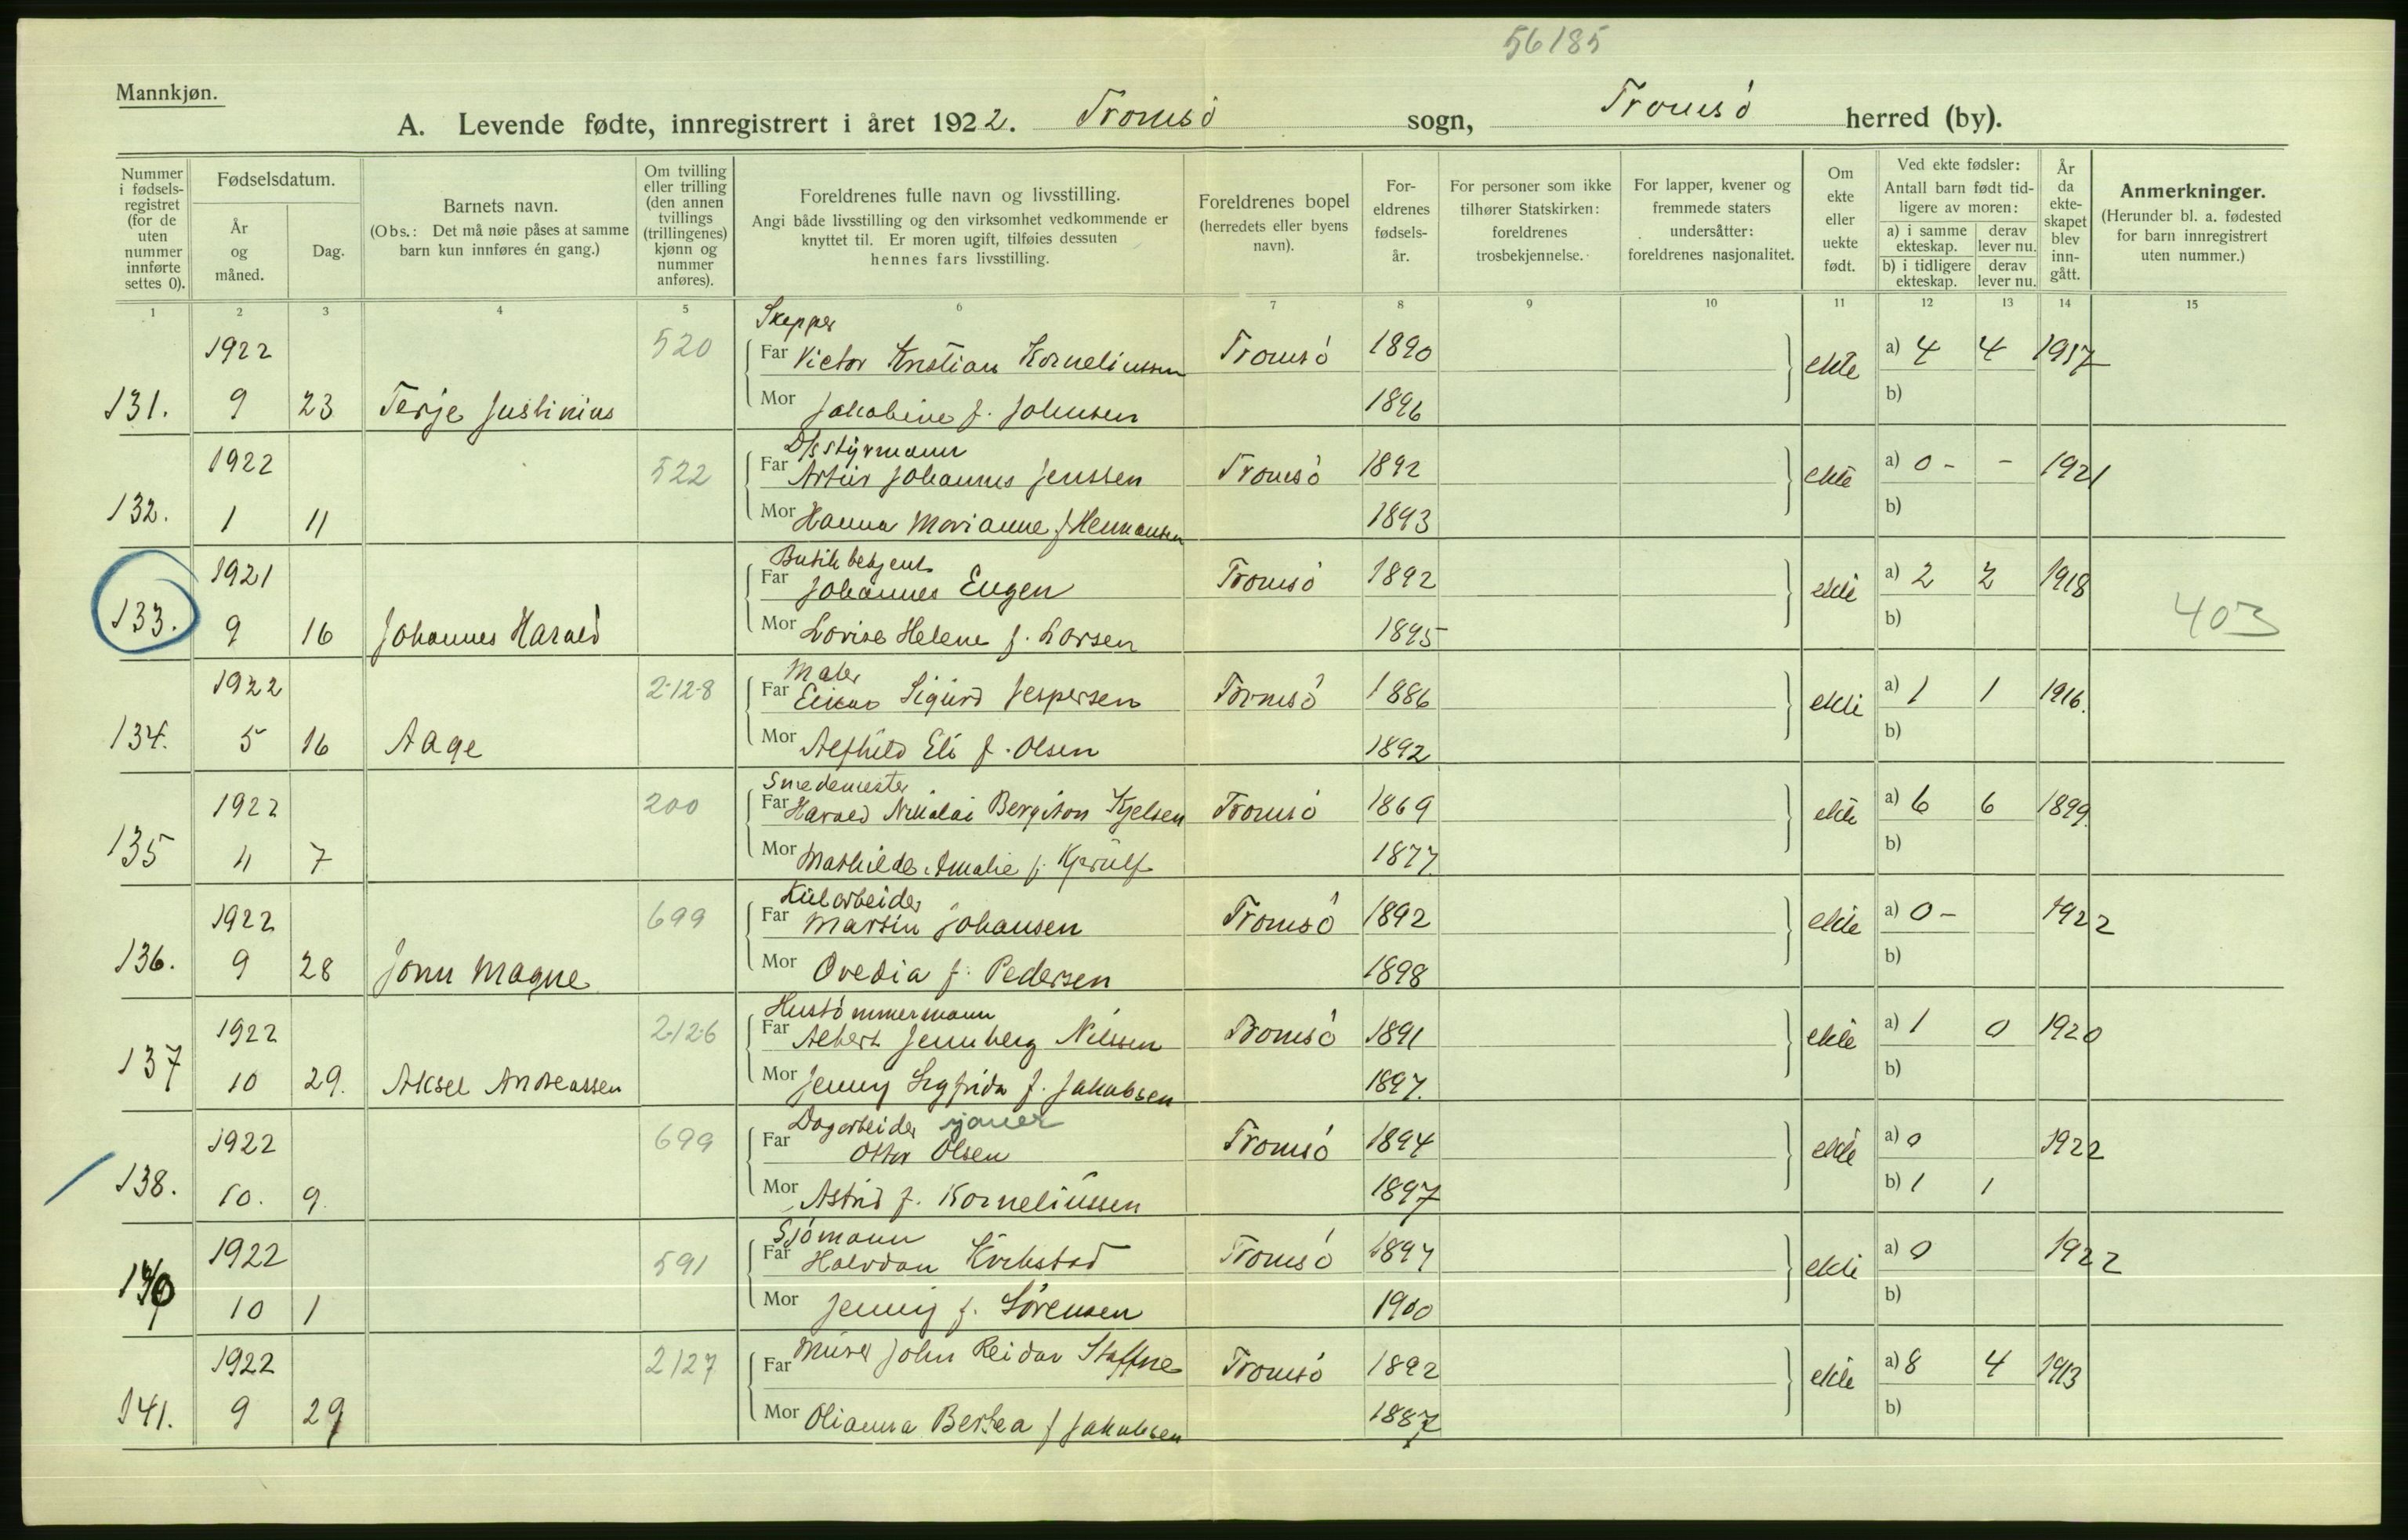 56185
Mannkjøn.
A. Levende fødte, innregistrert i året 1922. Tromsö sogn, Tromsö herred (by).
Nummer i fødsels-registret (for de uten nummer innførte settes 0).
Fødselsdatum.
År og måned.
Dag.
Barnets navn.
(Obs.: Det må nøie påses at samme barn kun innføres én gang.)
Om tvilling eller trilling (den annen tvillings (trillingenes) kjønn og nummer anføres).
Foreldrenes fulle navn og livsstilling.
Angi både livsstilling og den virksomhet vedkommende er knyttet til. Er moren ugift, tilføies dessuten hennes fars livsstilling.
Foreldrenes bopel (herredets eller byens navn).
For-eldrenes fødsels-år.
For personer som ikke tilhører Statskirken: foreldrenes trosbekjennelse.
For lapper, kvener og fremmede staters undersåtter: foreldrenes nasjonalitet.
Om ekte eller uekte født.
Ved ekte fødsler:
Antall barn født tid-ligere av moren:
a) i samme ekteskap. derav lever nu.
b) i tidligere ekteskap. derav lever nu.
År da ekte-skapet blev inn-gått.
Anmerkninger.
(Herunder bl. a. fødested for barn innregistrert uten nummer.)
1 2 3 4 5 6 7 8 9 10 11 12 13 14 15
Skepper
1922 520 Far Victor Kristian Korneliussen Tromsö 1890 ekte a) 4 4 1917
131. 9 23 Terje Justinius Mor Jakobine f. Johnsen 1896 b)
D/s styrmann
1922 522 Far Artur Johannes Jenssen Tromsö 1892 ekte a) 0 - - 1921
132. 1 11 Mor Hanna Marianne f Hermansen 1893 b)
Butikbetjent
1921 Far Johannes Eugen Tromsö 1892 ekte a) 2 2 1918
133. 9 16 Johannes Harald Mor Lovise Helene f. Larsen 1895 b) 403
Maler
1922 2-12-8 Far Einar Sigurd Jespersen Tromsö 1886 ekte a) 1 1 1916.
134. 5 16 Aage Mor Alfhild Eli f. Olsen 1892 b)
Smedemester
1922 200 Far Harald Nikolai Bergiton Kjelsen Tromsö 1869 ekte a) 6 6 1899.
135 4 7 Mor Mathilde Amalie f. 1877. b)
Kularbeider
1922 699 Far Martin Johansen Tromsö 1892 ekte a) 0 - 1922
136. 9 28 Jonn Magne Mor Ovedia f. Pedersen 1898 b)
Hustömmermann
1922 2-12-6 Far Albert Jennberg Nilssen Tromsö 1891 ekte a) 1 0 1920
137 10 29. Aksel Andreassen Mor Jenny Sigfrida f. Jakobsen 1897. b)
Dagarbeider sjauer
1922 699 Far Ottar Olsen Tromsö 1894 ekte a) 0 1922
138. 10. 9. Mor Astrid f. Korneliussen 1897 b) 1 1
Sjömann
1922 591 Far Halvdan Tromsö 1897 ekte a) 0 1922
140 10 1 Mor Jenny f. Sörensen 1900 b)
1922 2127 Far Murer John Reidar Staffne Tromsö 1892 ekte a) 8 4 1913
141. 9 29 Mor Olianna Bertea f Jakobsen 1887 b)